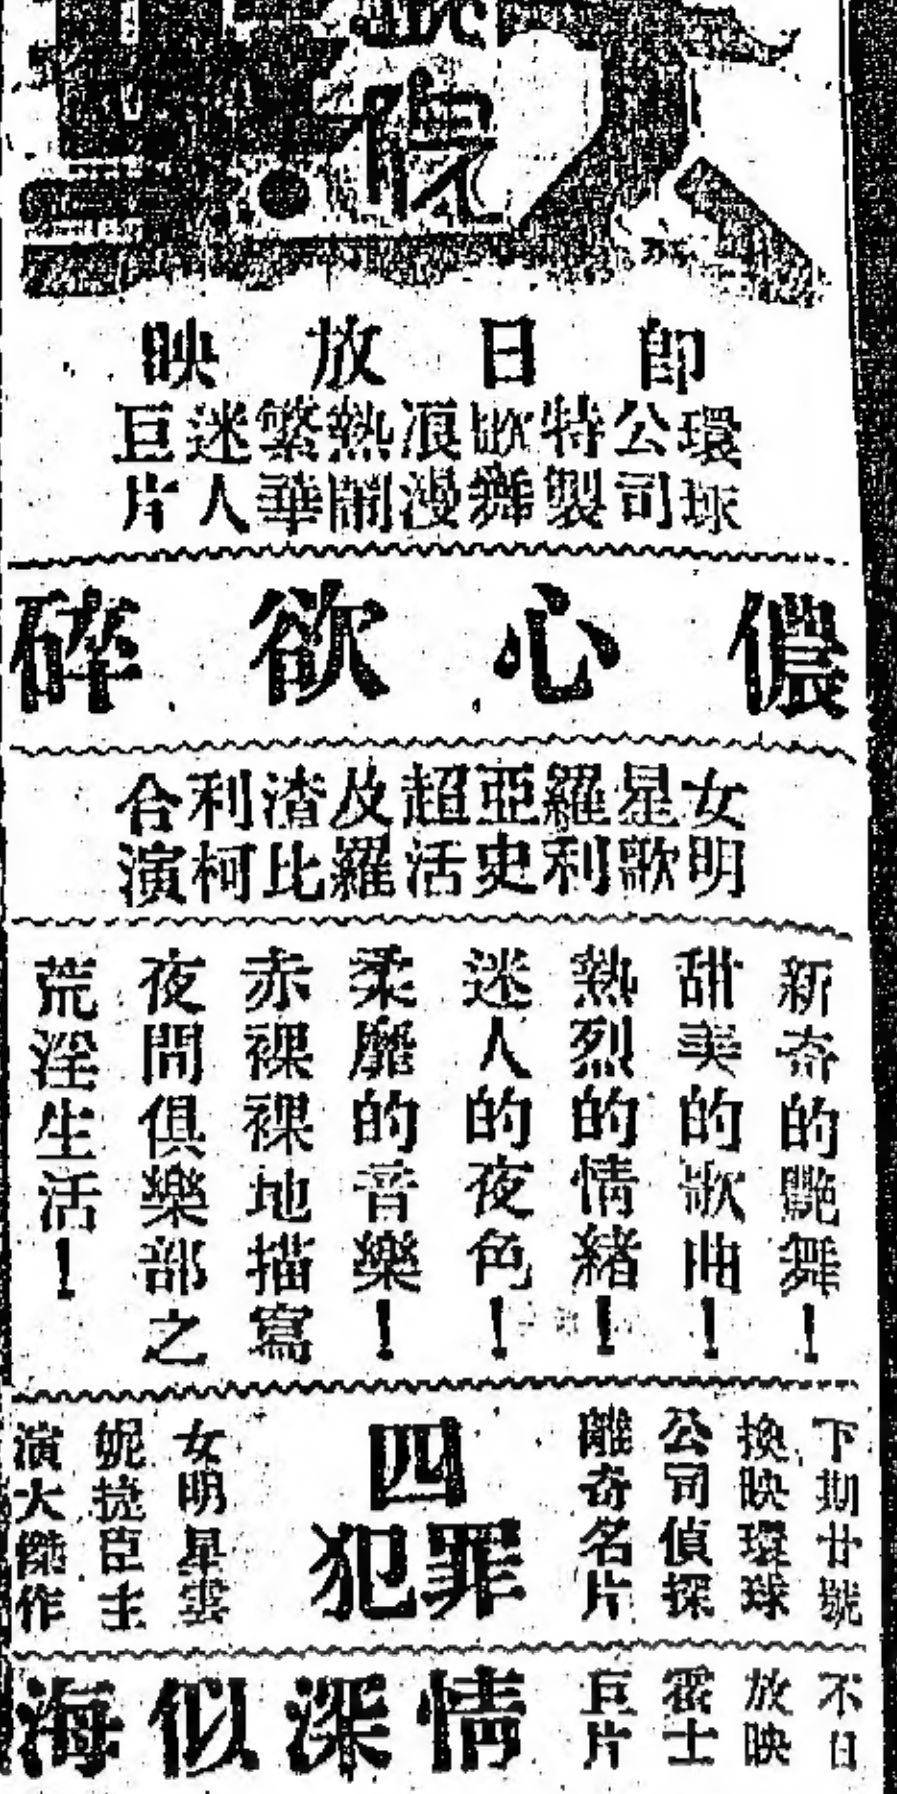 即日放映
環球公司特製歌舞浪漫熱鬧繁華迷人巨片
儂心欲碎
女明星歌羅利亞史超活及羅渣比利柯合演
新奇的艷舞！
甜美的歌曲！
熱烈的情緒！
迷人的夜色！
柔靡的音樂！
赤裸裸地描寫
夜間俱樂部之
荒淫生活！
下期廿號
換映環球
公司偵探
離奇名片
四
罪犯
女明星雲
妮捷臣主
演大傑作
不日
放映
霍士
巨片
情深似海